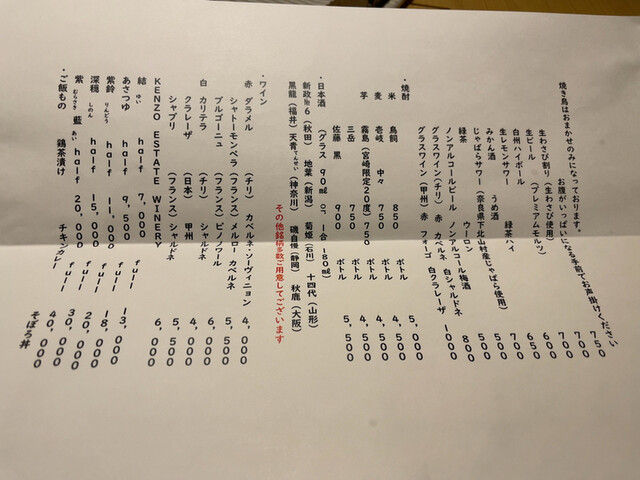 焼き鳥はおまかせのみになっております。
お腹がいっぱいになる手前でお声掛けください
生わさび割り (生わさび使用) 750
生ビール (プレミアムモルツ) 700
白州ハイボール 700
生レモンサワー 緑茶ハイ 600
みかん酒 うめ酒 650
じゃばらサワー (奈良県下北山村産じゃばら使用) 700
緑茶 ウーロン 500
ノンアルコールビール ノンアルコール梅酒 500
グラスワイン(チリ) 赤 カベルネ 白シャルドネ 800
グラスワイン(甲州) 赤 フォーゴ 白クラレーザ 1000
・焼酎
米 鳥飼 850 ボトル 5,000
麦 壱岐 中々 750 ボトル 4,500
芋 霧島(宮崎限定20度) 750 ボトル 4,500
三岳 750 ボトル 4,500
佐藤 黒 900 ボトル 5,500
・日本酒 (グラス 90㎖ or 一合 180㎖)
新政№6(秋田) 地葉(新潟) 菊姫(石川) 十四代(山形)
黒龍(福井) 天青てんせい(神奈川) 磯自慢(静岡) 秋鹿(大阪)
その他銘柄多数ご用意してございます
・ワイン
赤 ダラメル (チリ) カベルネ・ソーヴィニョン 4,000
シャトーモンペラ (フランス) メルロー カベルネ 5,000
ブルゴーニュ (フランス) ピノノワール 6,500
白 カリテラ (チリ) シャルドネ 4,000
クラレーザ (日本) 甲州 4,000
シャブリ (フランス) シャルドネ 5,500
KENZO ESTATE WINERY 6,000
結 ゆい half 7,000 full 13,000
あさつゆ half 9,500 full 18,000
紫鈴 りんどう half 11,000 full 20,000
深穏 しのん half 15,000 full 30,000
紫 むらさき 藍 あい half 20,000 full 40,000
・ご飯もの 鶏茶漬け チキンカレー そぼろ丼